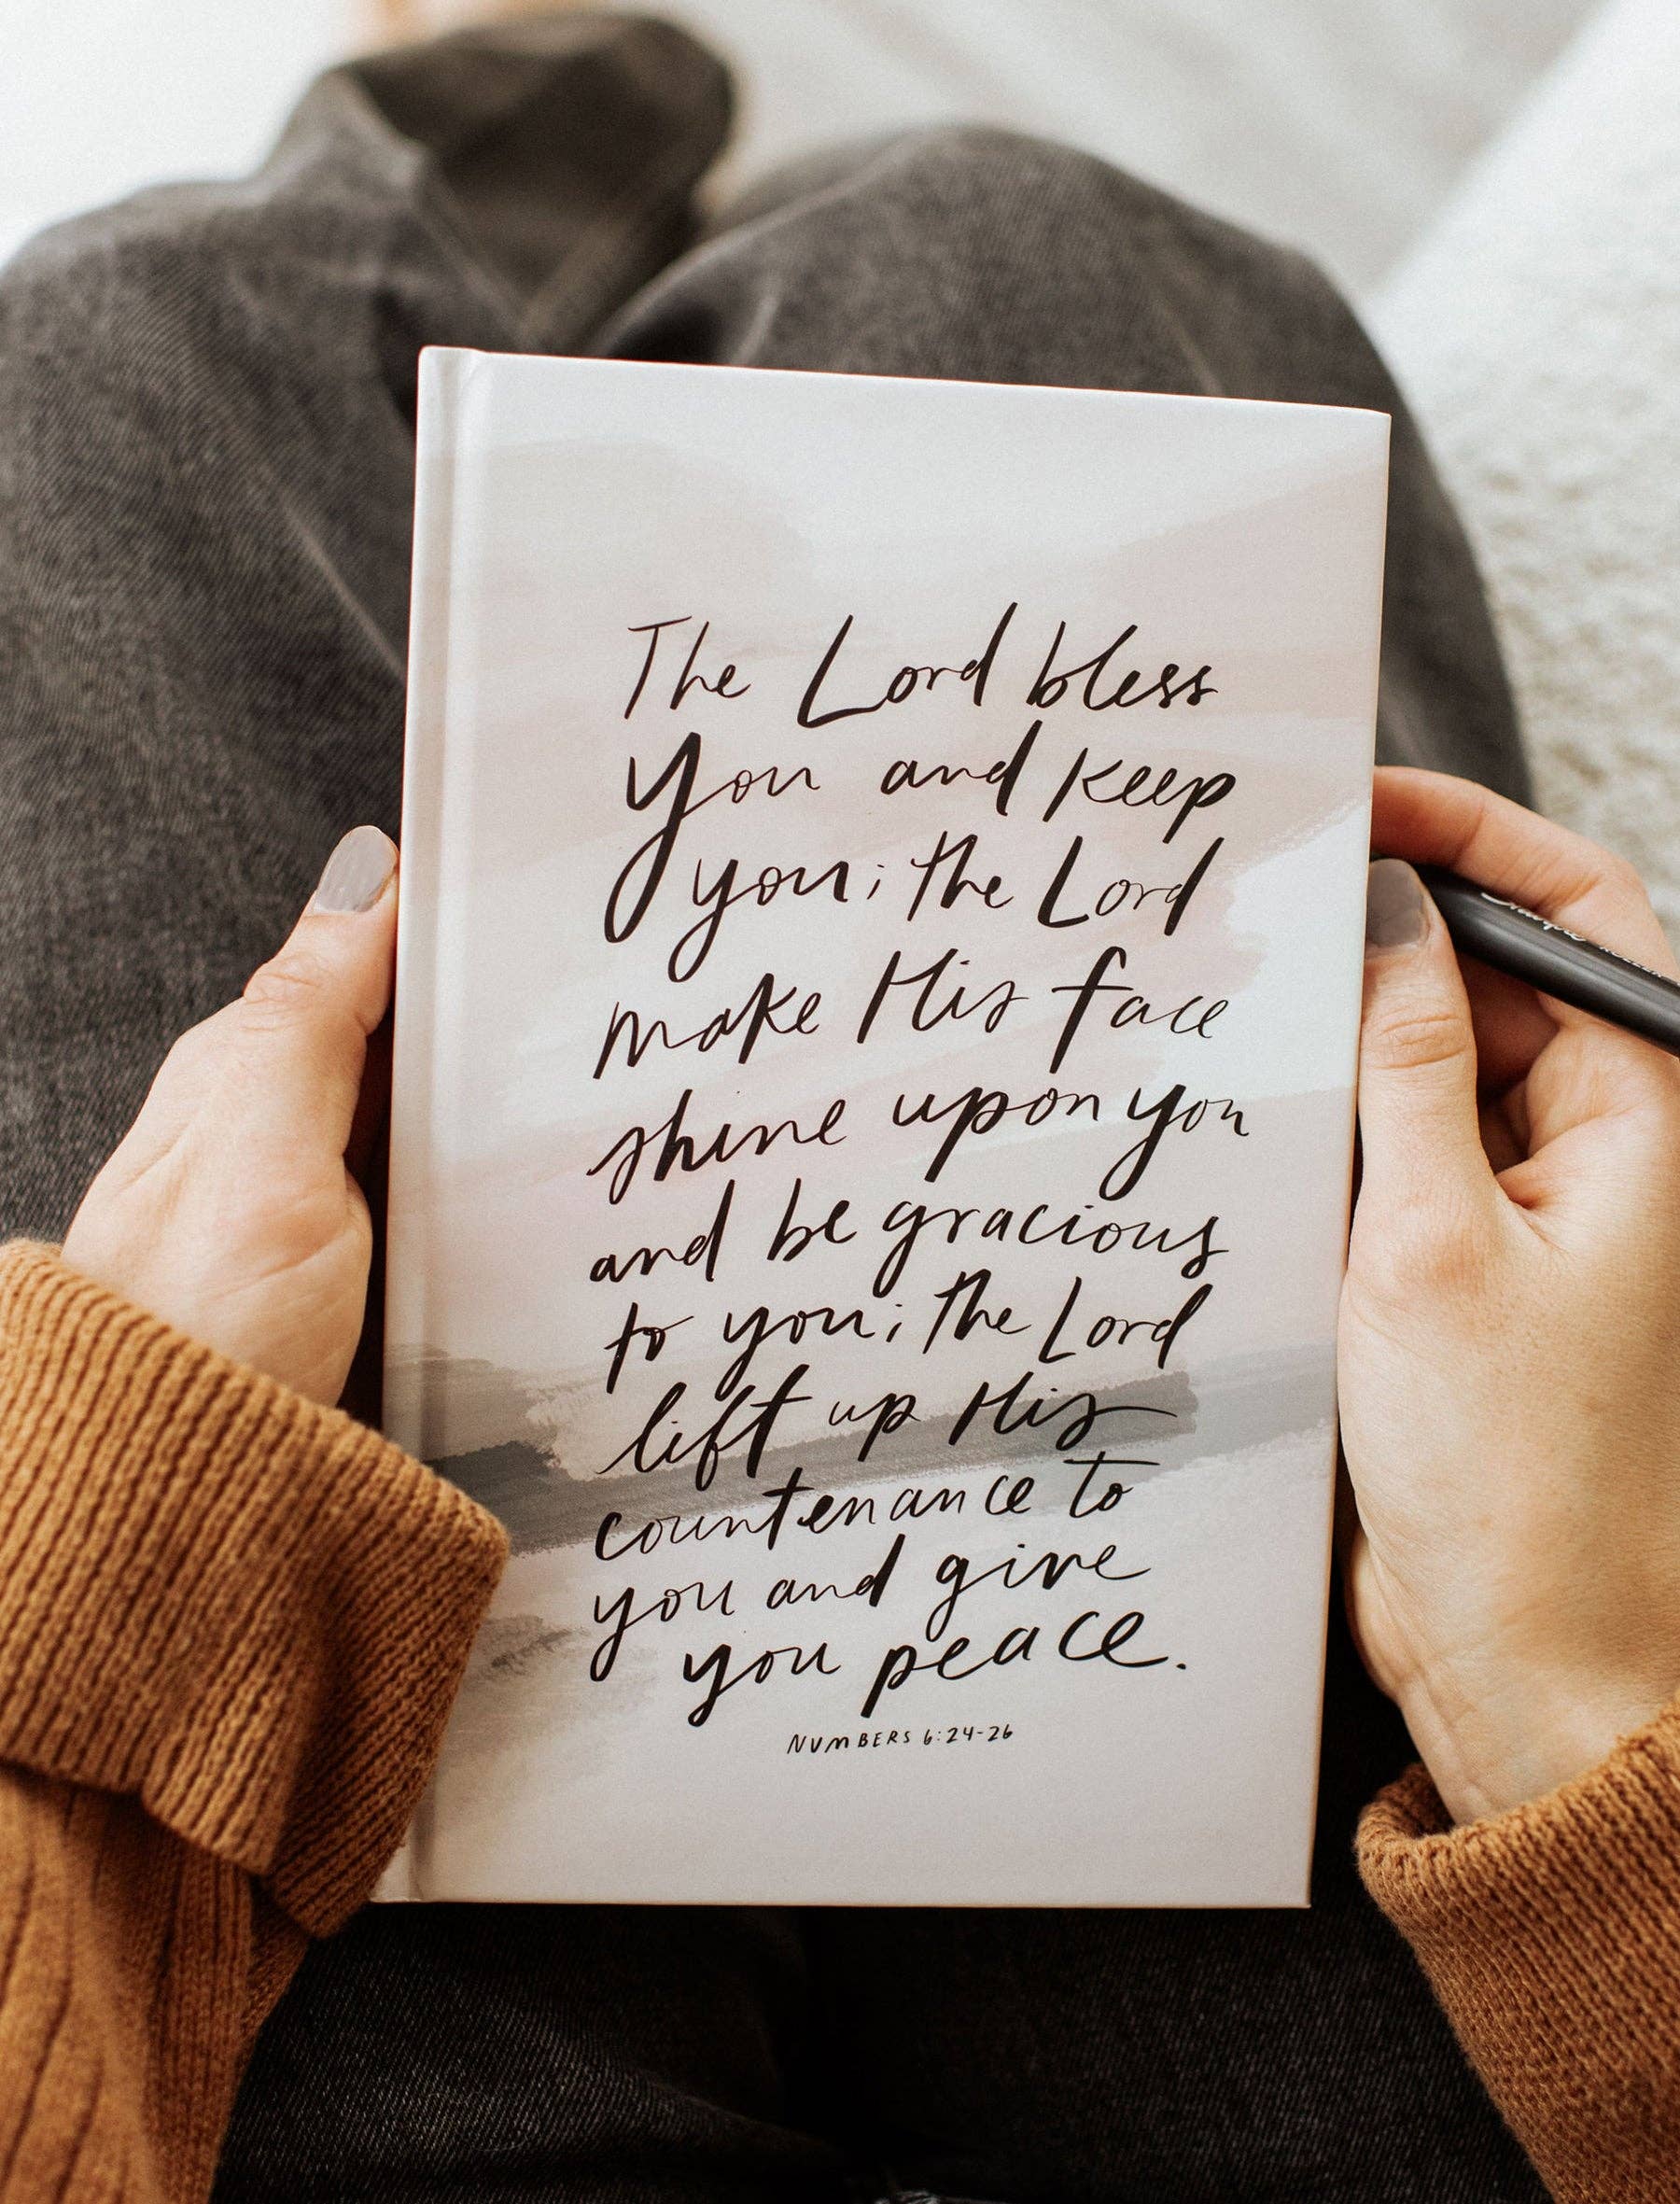 The Lord bless
you and keep
you; the Lord
make His face
shine upon you
and be gracious
to you; the Lord
lift up His
countenance to
you and give
you peace.
NUMBERS 6:24-26
Sharpie